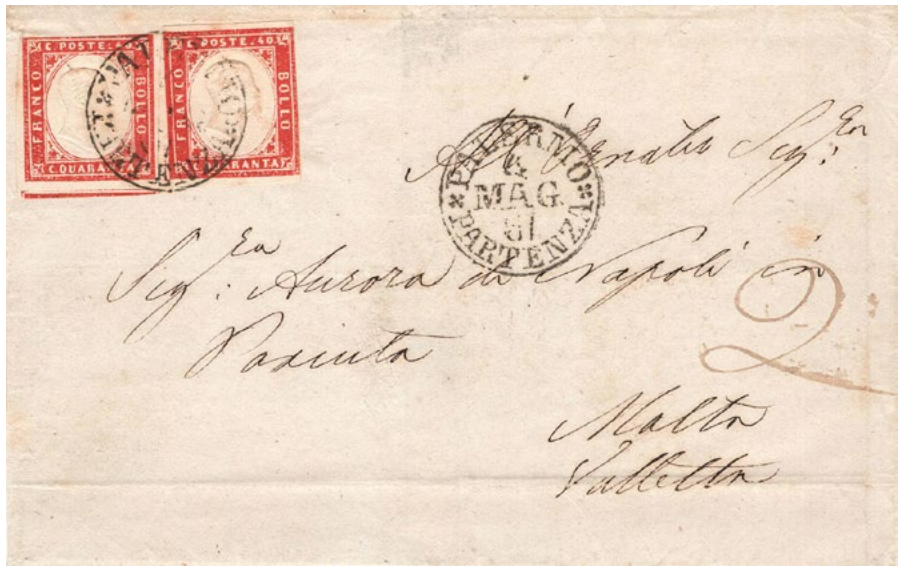 C. POSTE. 40
FRANCO
BOLLO
C. QUARANTA
C. POSTE. 40
FRANCO
BOLLO
QUARANTA
PALERMO
4
MAG
61
PARTENZA
Sig.ra
Sig.ra Aurora di Napoli in
2
Malta
Valletta